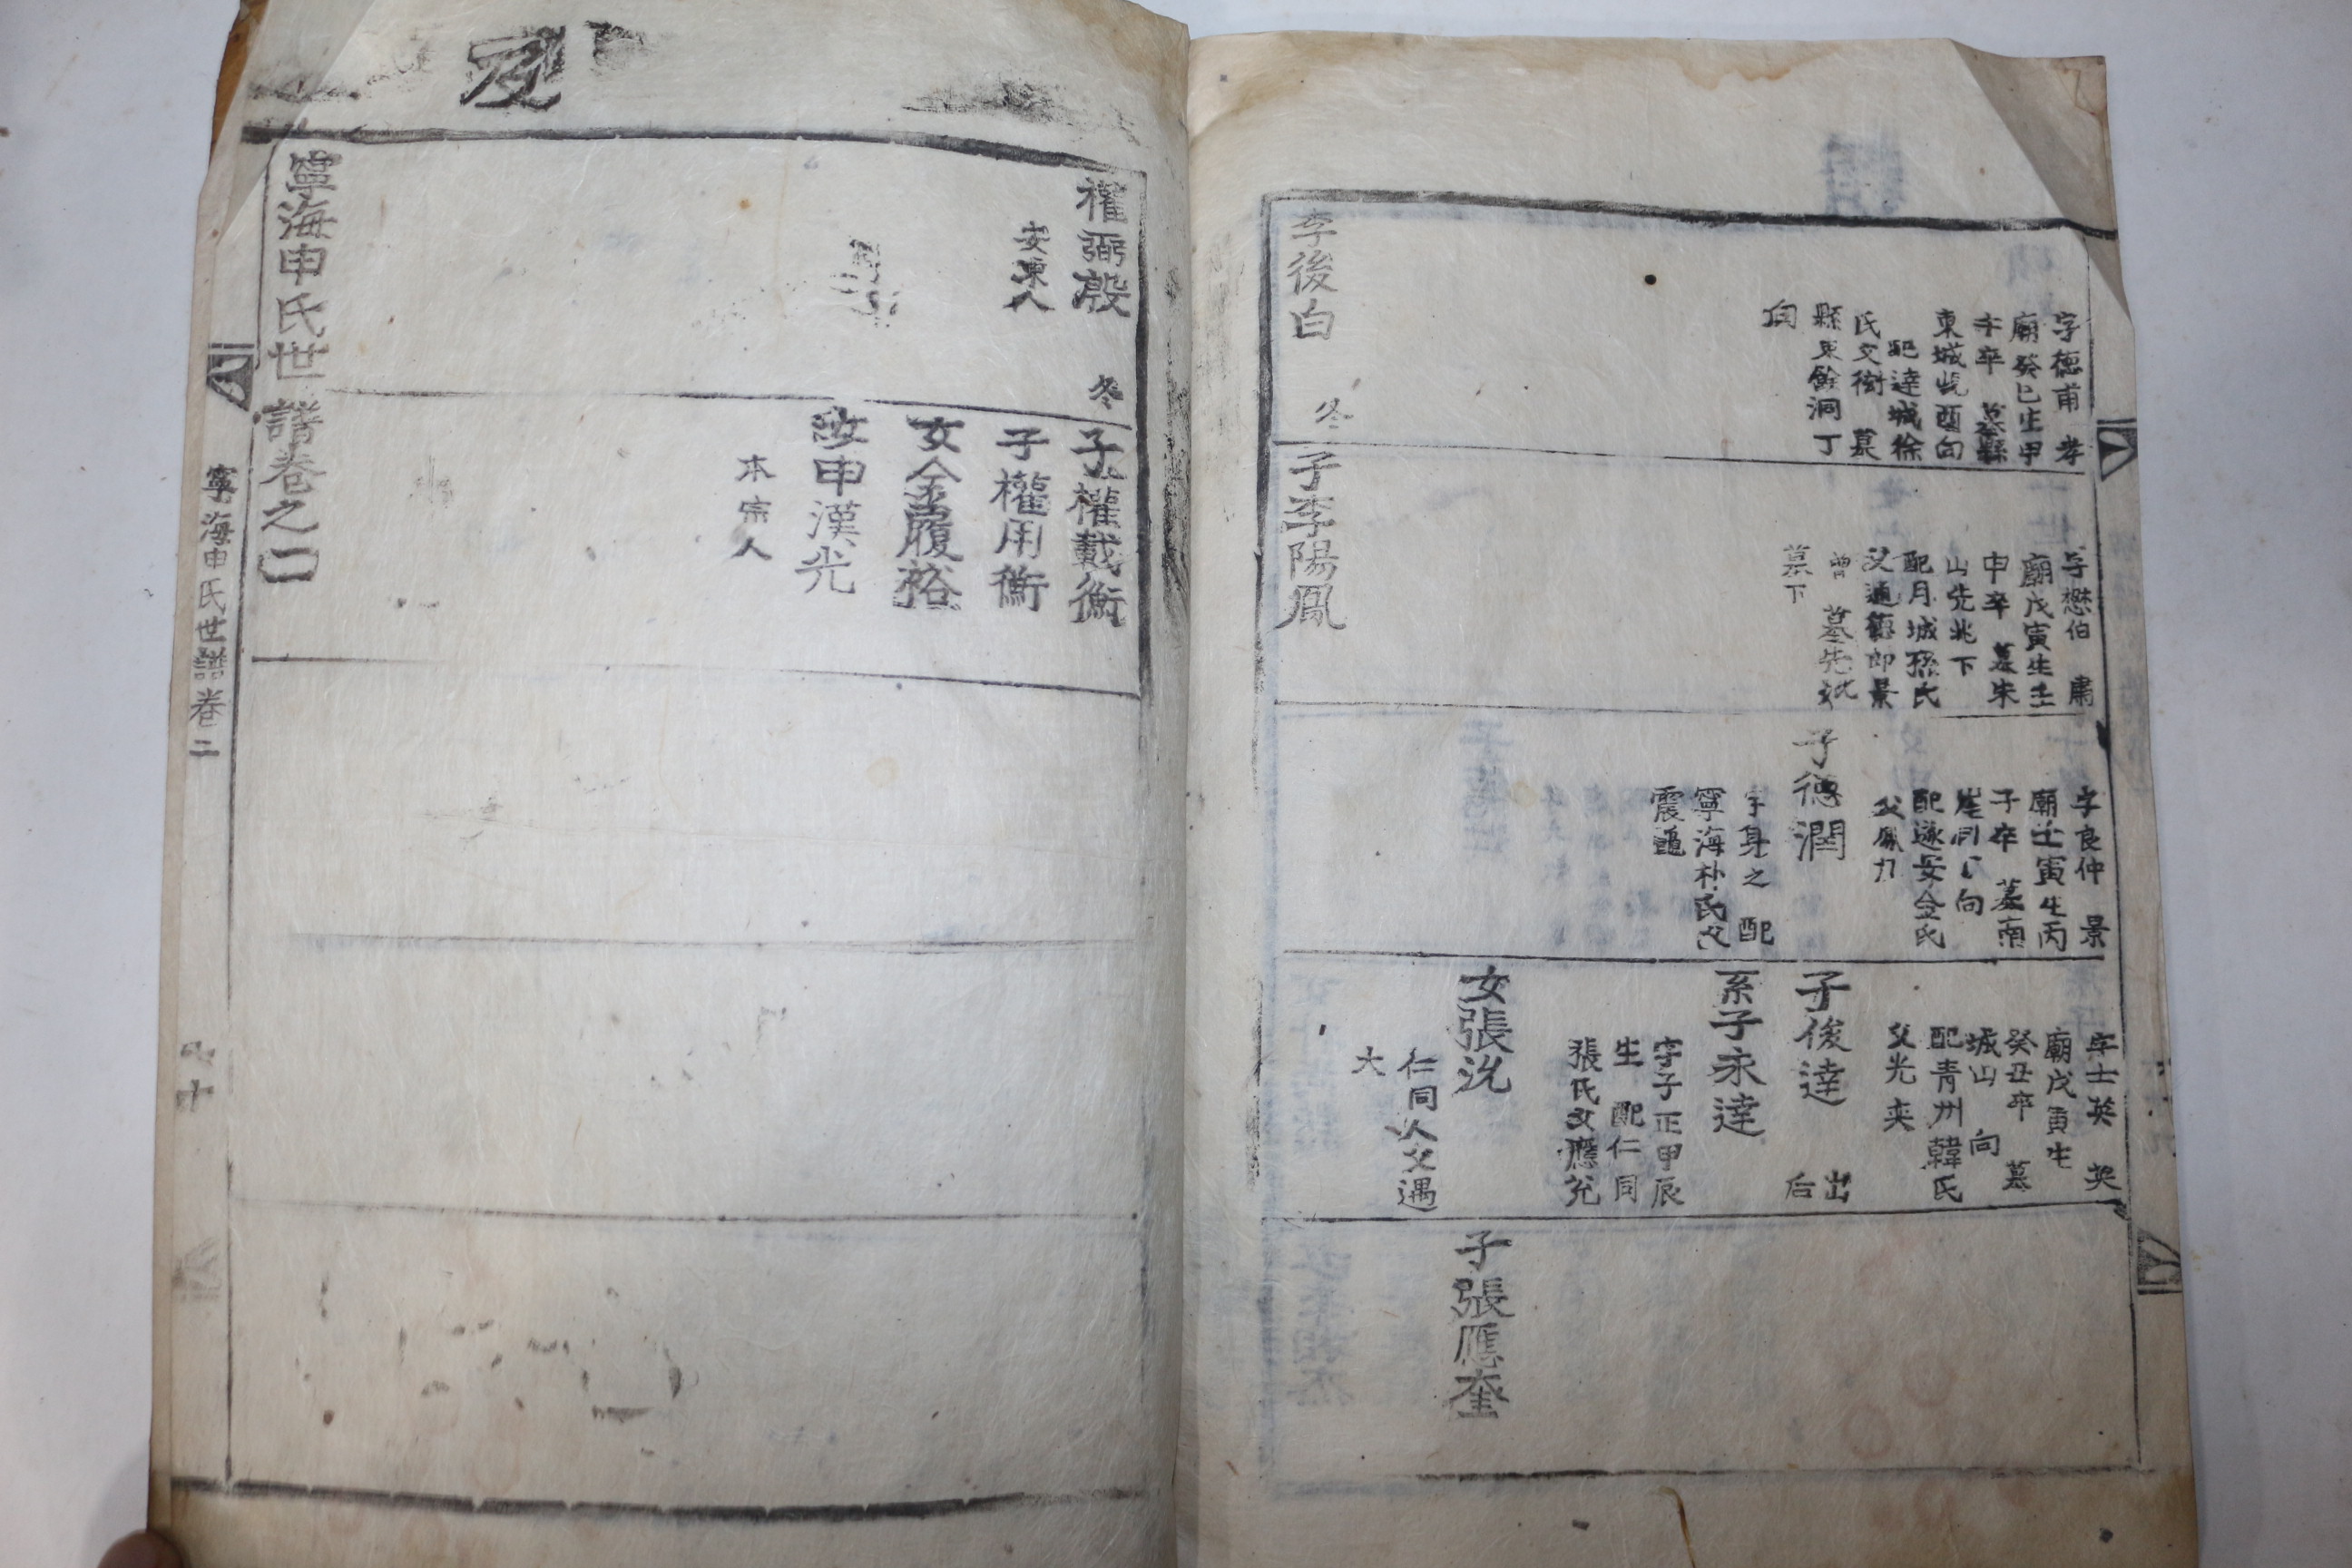 字德甫 孝
廟癸巳生甲
午卒 墓縣
東城峴酉向
配達城徐
氏文衡 墓
縣東餘洞丁
向
李後白 冬
字懋伯 肅
廟戊寅生壬
申卒 墓朱
山先兆下
配月城孫氏
父通德郎景
曾 墓先妣
墓下
子李陽鳳
字良仲 景
廟壬寅生丙
子卒 墓南
向
配遂安金氏
父鳳力
子德潤
字身之 配
寧海朴氏父
震龜
字士英 英
廟戊寅生
癸丑卒 墓
城山 向
配青州韓氏
父光奕
子俊達 出
后
系子永達
字子正甲辰
生 配仁同
張氏父應兌
女張沇
仁同人父遇
大
子張應奎
權弼殷 冬
安東人
子權載衡
子權用衡
女金履裕
女申漢光
本宗人
寧海申氏世譜卷之二
寧海申氏世譜卷二
十